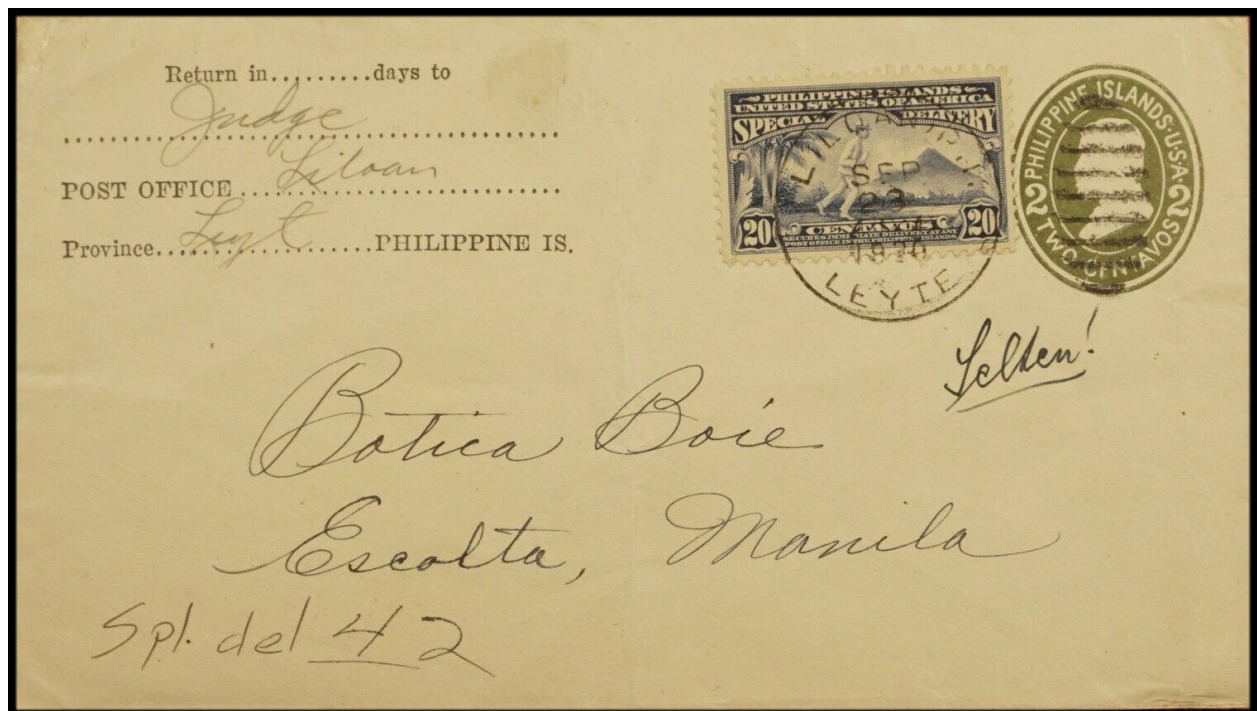 Return in.........days to
Judge
POST OFFICE Liloan
Province Leyt PHILIPPINE IS.
PHILIPPINE ISLANDS
UNITED STATES OF AMERICA
SPECIAL DELIVERY
20 CENTAVOS 20
SECURES IMMEDIATE DELIVERY AT ANY
POST OFFICE IN THE PHILIPPINE ISLANDS
SEP
LEYTE
PHILIPPINE ISLANDS·U·S·A·
2 2
TWO CENTAVOS
Selten!
Botica Boie
Escolta, Manila
Spl. del 42